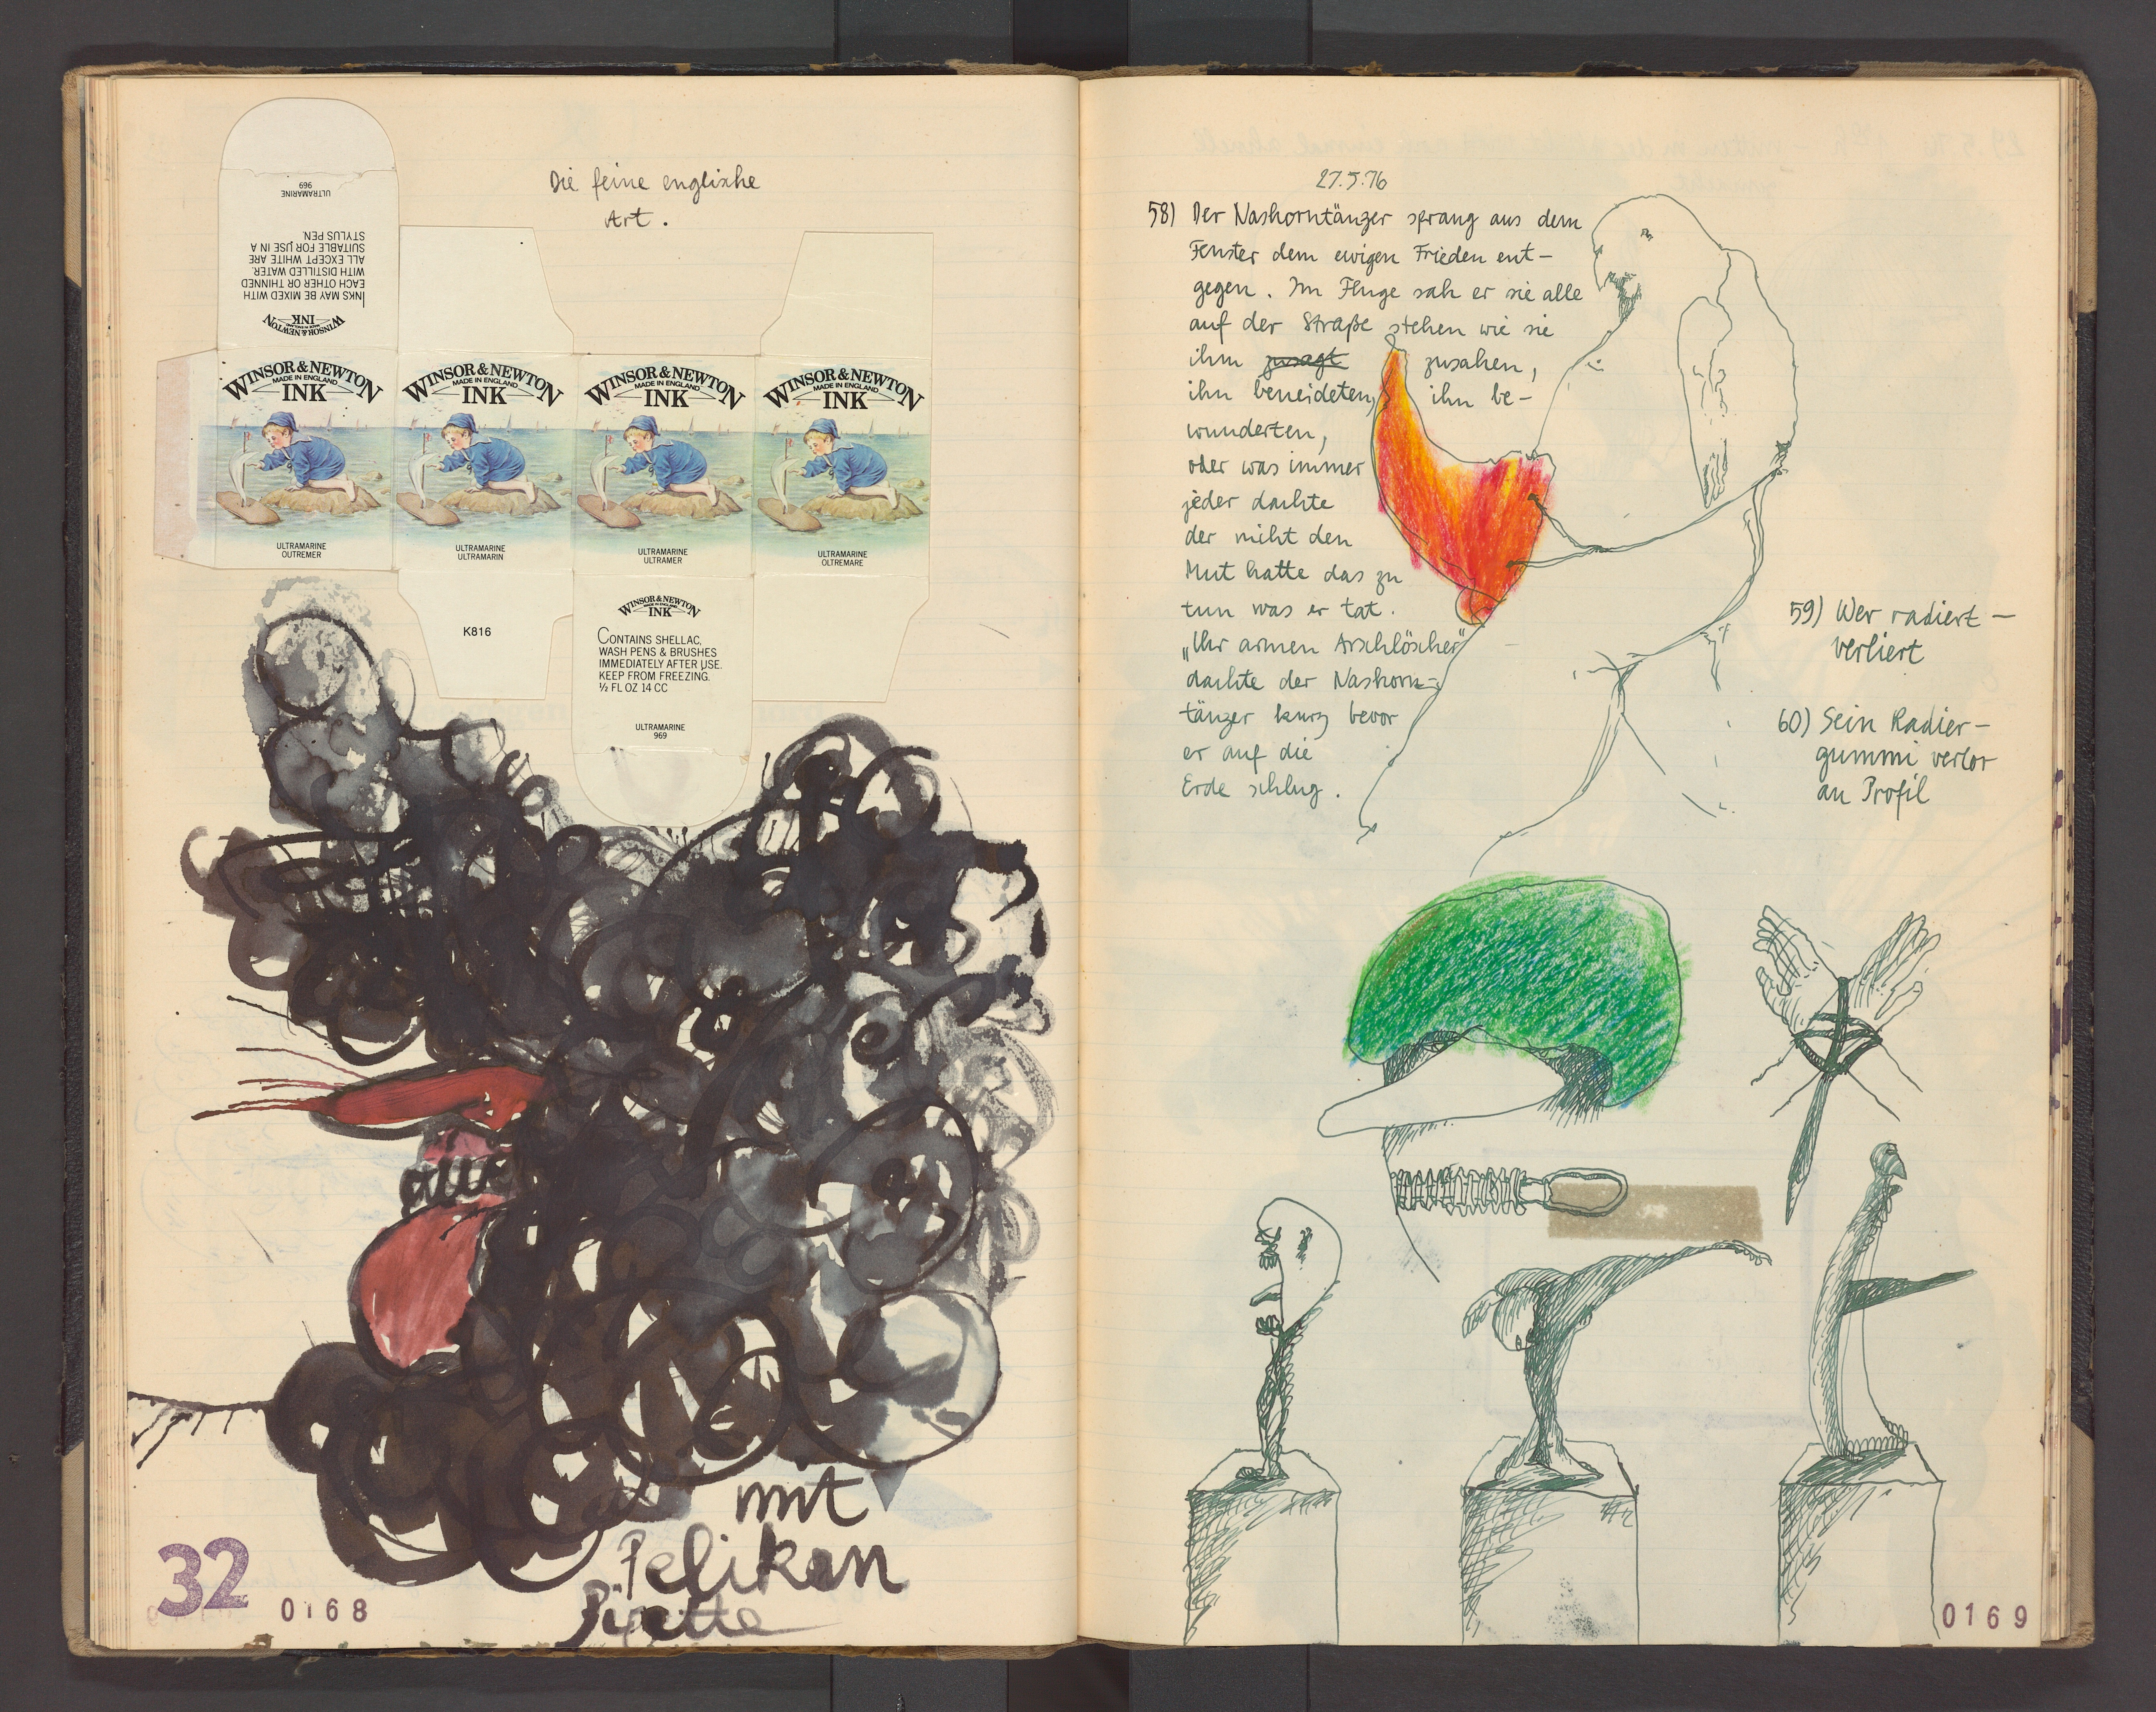 Die feine englische
Art.
ULTRAMARINE
969
INKS MAY BE MIXED WITH
EACH OTHER OR THINNED
WITH DISTILLED WATER.
ALL EXCEPT WHITE ARE
SUITABLE FOR USE IN A
STYLUS PEN.
WINSOR & NEWTON
MADE IN ENGLAND
INK
WINSOR & NEWTON
MADE IN ENGLAND
INK
ULTRAMARINE
OUTREMER
WINSOR & NEWTON
MADE IN ENGLAND
INK
ULTRAMARINE
ULTRAMARIN
WINSOR & NEWTON
MADE IN ENGLAND
INK
ULTRAMARINE
ULTRAMER
WINSOR & NEWTON
MADE IN ENGLAND
INK
ULTRAMARINE
OLTREMARE
K816
WINSOR & NEWTON
MADE IN ENGLAND
INK
CONTAINS SHELLAC,
WASH PENS & BRUSHES
IMMEDIATELY AFTER USE.
KEEP FROM FREEZING.
½ FL OZ 14 CC
ULTRAMARINE
969
mit
Pelikan
Pipette
32
0168
27.5.76
58) Der Nashorntänzer sprang aus dem
Fenster dem ewigen Frieden ent-
gegen. Im Fluge sah er sie alle
auf der Straße stehen wie sie
ihm zusagt zusahen,
ihn beneideten, ihn be-
wunderten,
oder was immer
jeder dachte
der nicht den
Mut hatte das zu
tun was er tat.
„Ihr armen Arschlöscher"
dachte der Nashorn-
tänzer kurz bevor
er auf die
Erde schlug.
59) Wer radiert —
verliert
60) Sein Radier-
gummi verlor
an Profil
0169